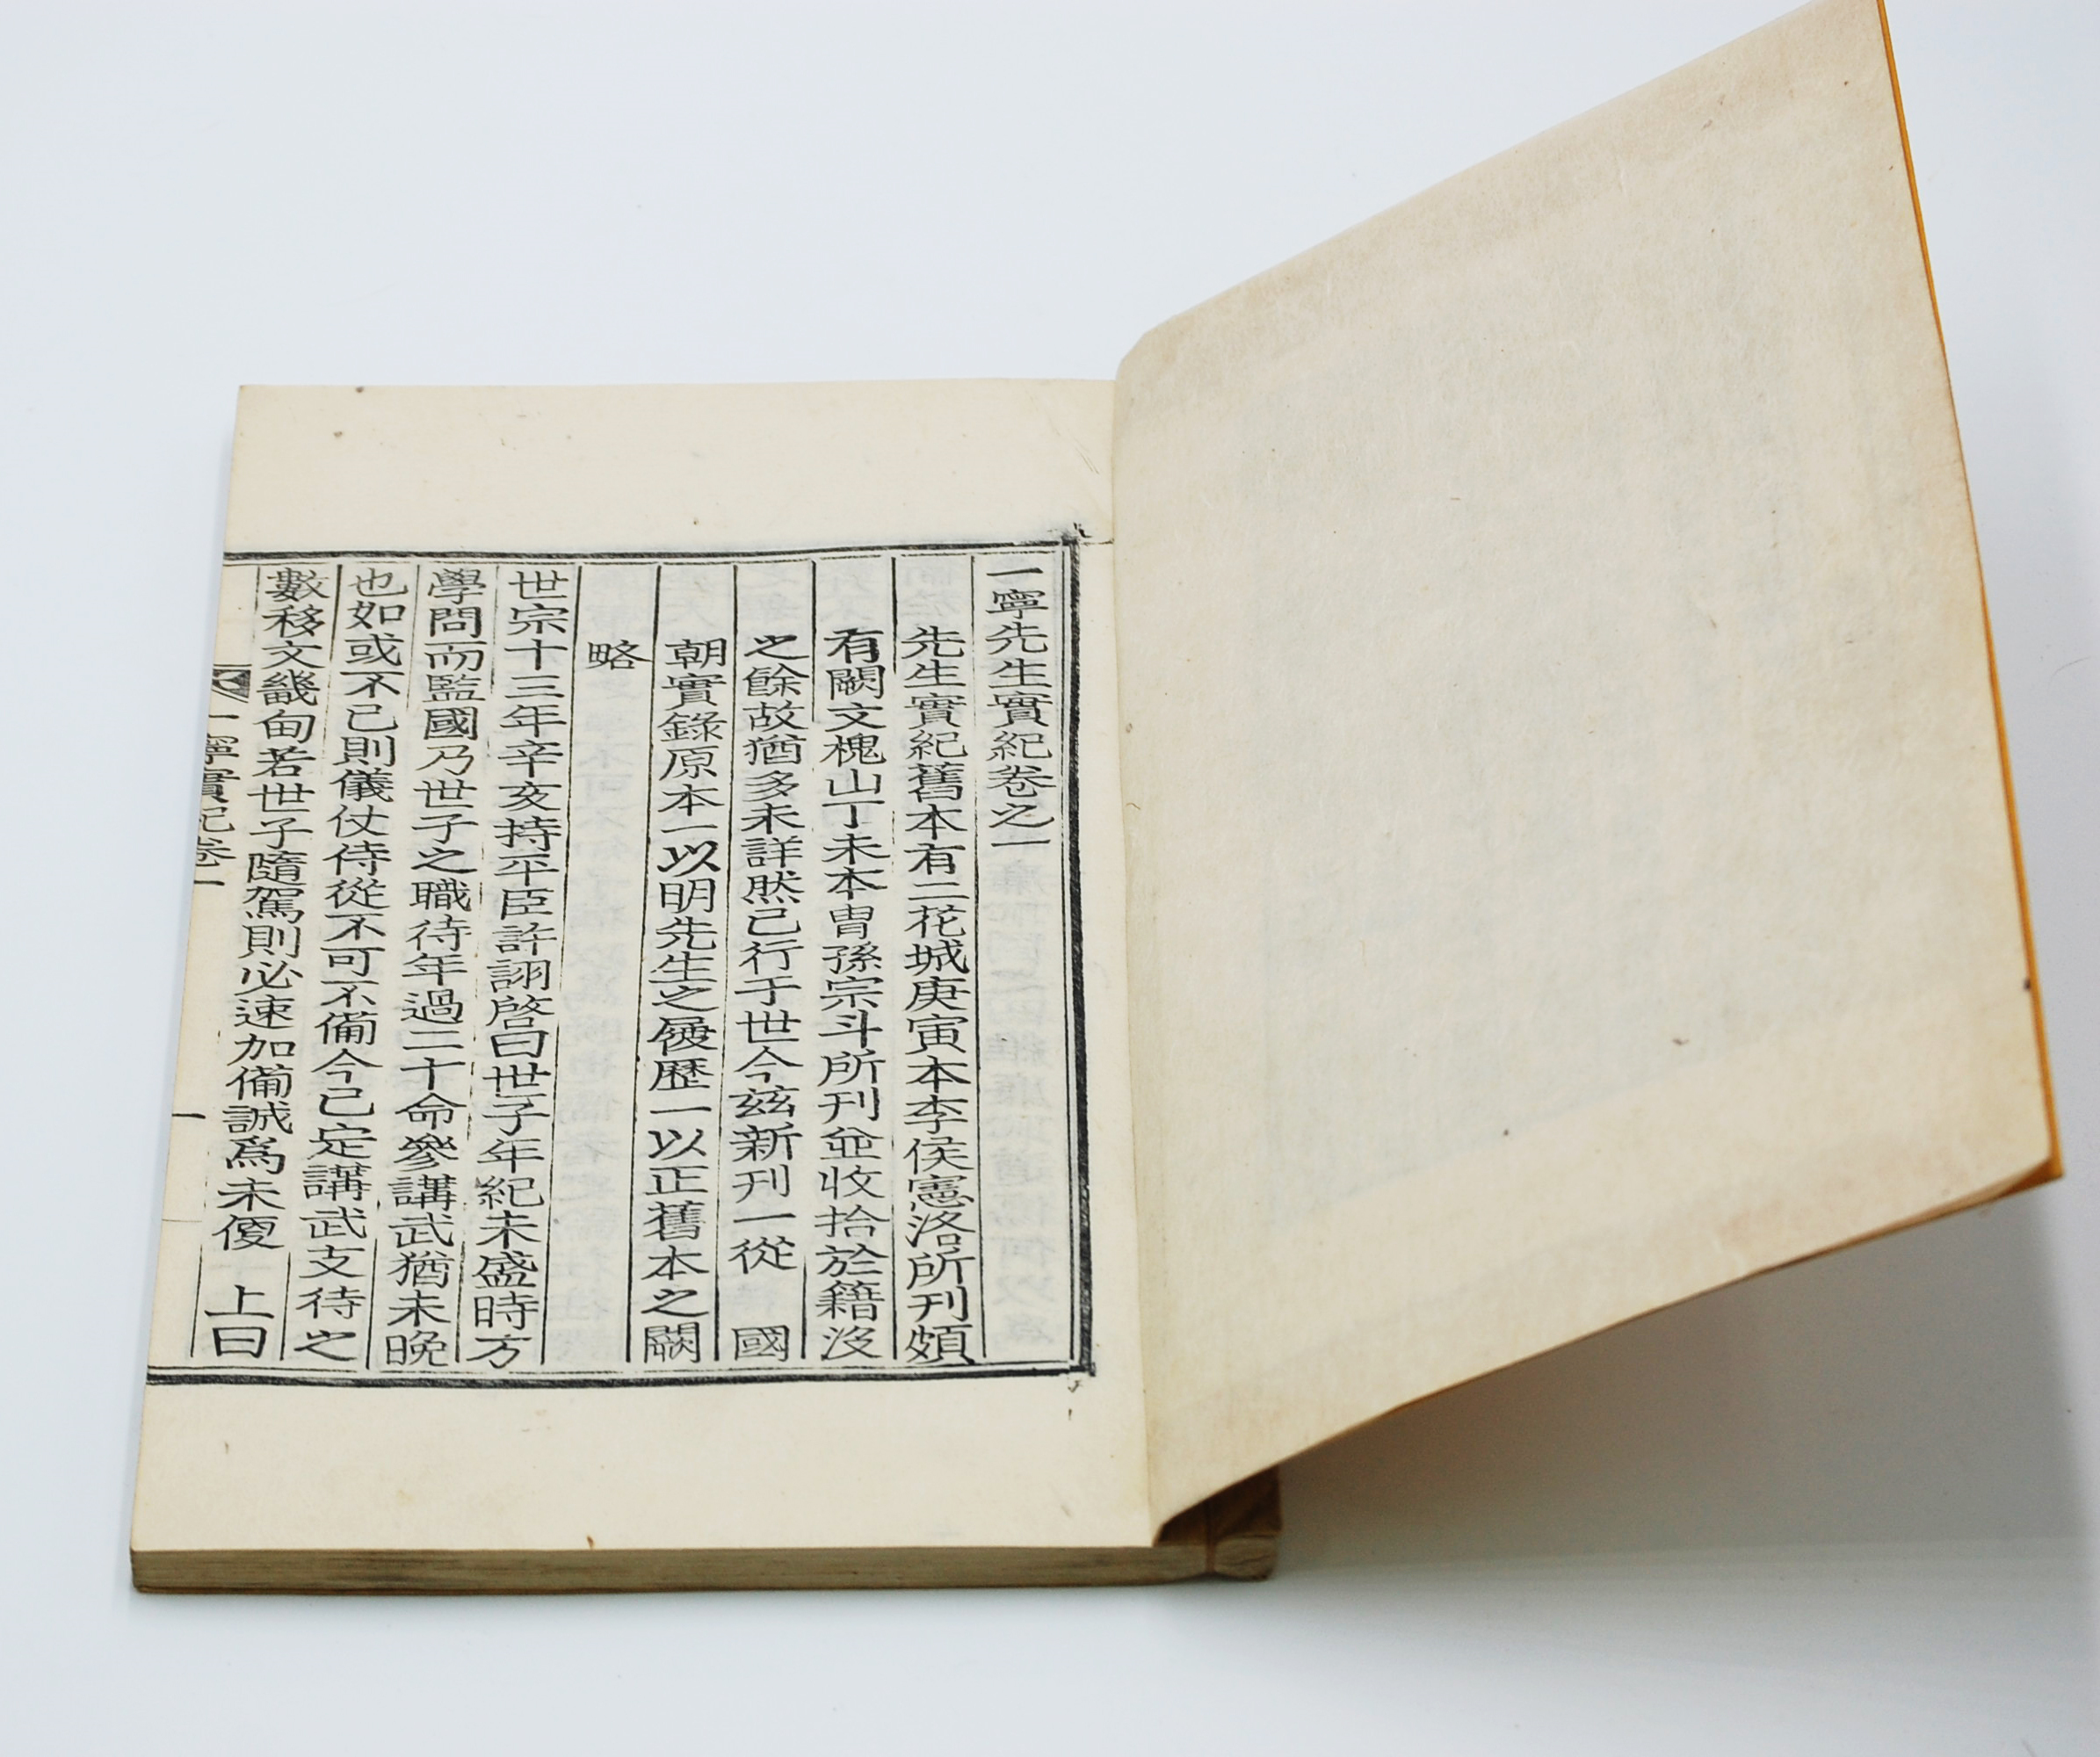 一寧先生實紀卷之一
先生實紀舊本有二花城庚寅本李侯憲洛所刊頗
有闕文槐山丁未本冑孫宗斗所刊並收拾於籍沒
之餘故猶多未詳然已行于世今玆新刊一從 國
朝實錄原本一以明先生之履歷一以正舊本之闕
略
世宗十三年辛亥持平臣許詡啓曰世子年紀未盛時方
學問而監國乃世子之職待年過二十命參講武猶未晚
也如或不已則儀仗侍從不可不備今已定講武支待之
數移文畿甸若世子隨駕則必速加備誠爲未便 上曰
一寧實紀卷一
一